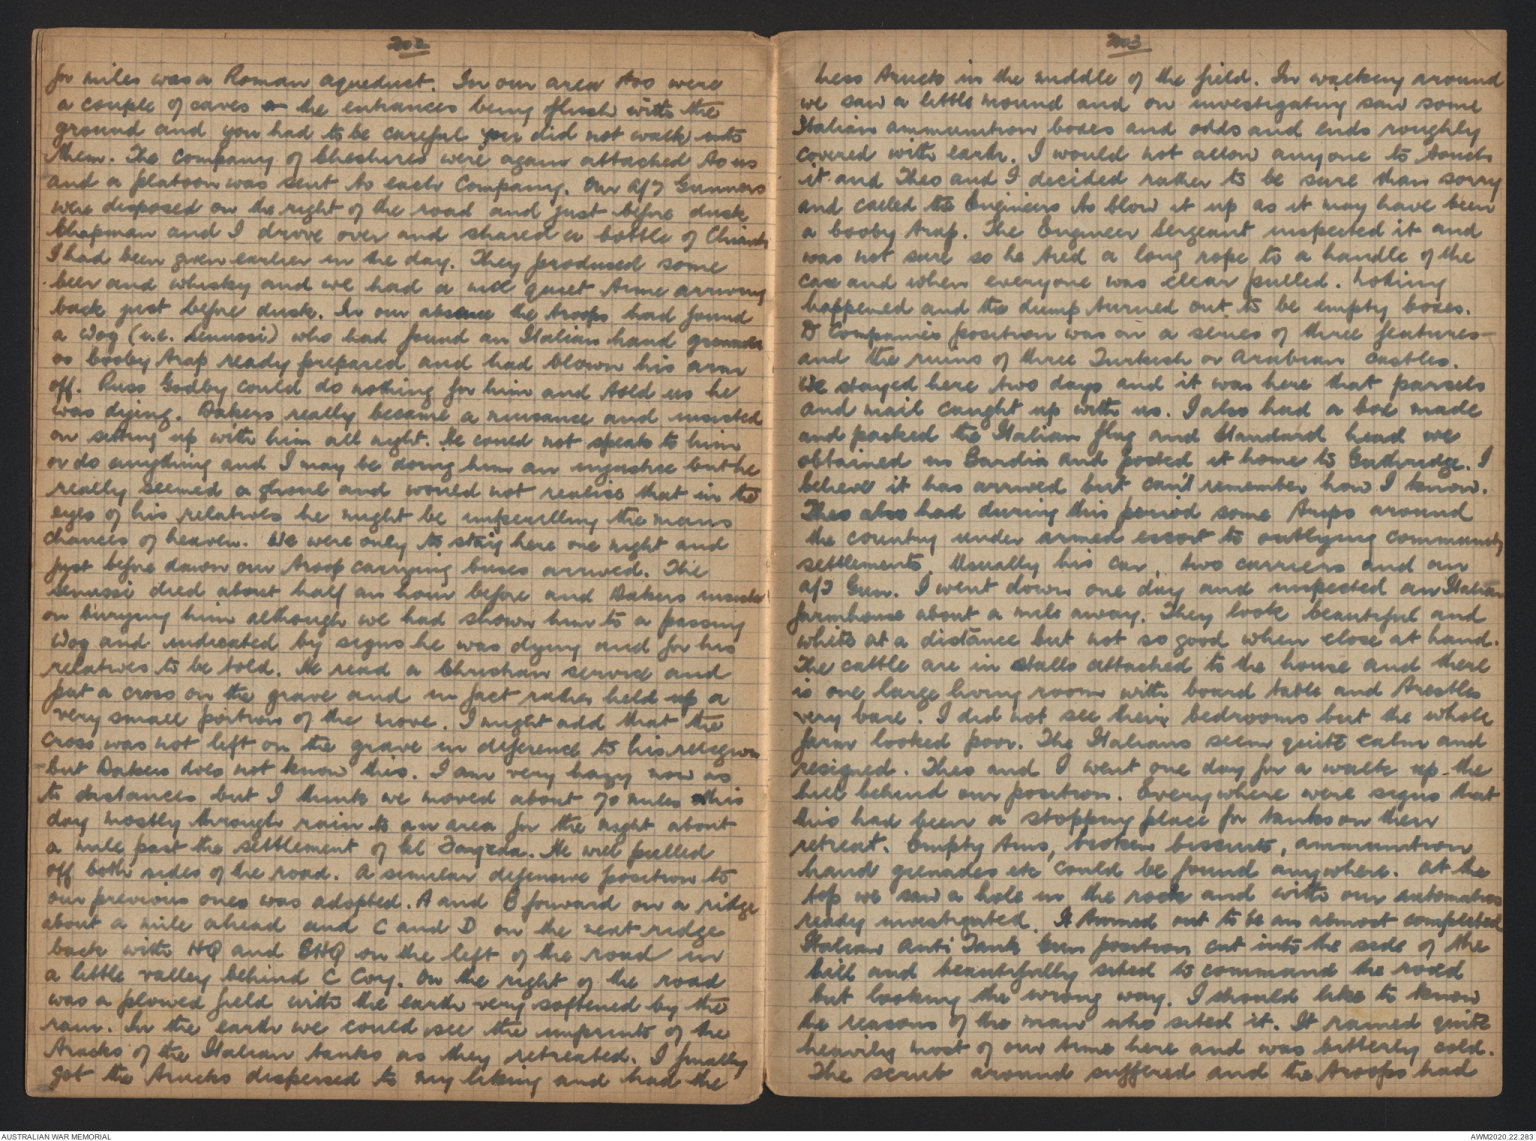 202
for miles was a Roman aqueduct. In our area too were
a couple of caves the entrances being flush with the
ground and you had to be careful you did not walk into
them. The company of Cheshires were again attached to us
and a platoon was sent to each Company. Our A/T Gunners
were disposed on the right of the road and just before dusk
Chapman and I drove over and shared a bottle of Chianti
I had been given earlier in the day. They produced some
beer and whisky and we had a nice quiet time arriving
back just before dusk. In our absence the troops had found
a Wog (i.e. Senussi) who had found an Italian hand grenade
or booby trap ready prepared and had blown his arm
off. Russ Godby could do nothing for him and told us he
was dying. Dakers really became a nuisance and insisted
on sitting up with him all night. He could not speak to him
or do anything and I may be doing him an injustice but he
really seemed a ghoul and would not realise that in the
eyes of his relatives he might be imperilling the mans
chances of heaven. We were only to stay here one night and
just before dawn our troop carrying buses arrived. The
Senussi died about half an hour before and Dakers insisted
on burying him although we had shown him to a passing
Wog and indicated by signs he was dying and for his
relatives to be told. He read a Christian service and
put a cross on the grave and in fact rather held up a
very small portion of the move. I might add that the
cross was not left on the grave in deference to his religion
- but Dakers does not know this. I am very hazy now as
to distances but I think we moved about 70 miles this
day mostly through rain to an area for the night about
a mile past the settlement of El Faiyzia. We will pulled
off both sides of the road. A similar defensive position to
our previous ones was adopted. A and B forward on a ridge
about a mile ahead and C and D on the next ridge
back with HQ and BHQ on the left of the road in
a little valley behind C Coy. On the right of the road
was a plowed field with the earth very softened by the
rain. In the earth we could see the imprints of the
tracks of the Italian tanks as they retreated. I finally
got the trucks dispersed to my liking and had the
203
mess truck in the middle of the field. In walking around
we saw a little mound and on investigating saw some
Italian ammunition boxes and odds and ends roughly
covered with earth. I would not allow anyone to touch
it and Theo and I decided rather to be sure than sorry
and called the Engineers to blow it up as it may have been
a booby trap. The Engineer Sergeant inspected it and
was not sure so he tied a long rope to a handle of the
case and when everyone was clear pulled. Nothing
happened and the dump turned out to be empty boxes.
D Companies position was on a series of three features -
and the ruins of three Turkish or Arabian castles.
We stayed here two days and it was here that parcels
and mail caught up with us. I also had a box made
and packed the Italian flag and Standard head we
obtained in Bardia and posted it home to Guthridge. I
believe it has arrived but can't remember how I know.
Theo also had during this period some trips around
the country under armed escort to outlying community
settlements. Usually his car, two carriers and an
A/T Gun. I went down one day and inspected an Italian
farmhouse about a mile away. They look beautiful and
white at a distance but not so good when close at hand.
The cattle are in stalls attached to the house and there
is one large living room with board table and trestles
very bare. I did not see their bedrooms but the whole
farm looked poor. The Italians seem quite calm and
resigned. Theo and I went one day for a walk up the
hill behind our position. Everywhere were signs that
this had been a stopping place for tanks on their
retreat. Empty tins, broken biscuits, ammunition
hand grenades etc could be found anywhere. At the
top we saw a hole in the rock and with our automatics
ready investigated. It turned out to be an almost completed
Italian Anti Tank Gun position cut into the side of the
hill and beautifully sited to command the road
but looking the wrong way. I should like to know
the reasons of the man who sited it. It rained quite
heavily most of our time here and was bitterly cold.
The scrub around suffered and the troops had
AUSTRALIAN WAR MEMORIAL
AWM2020.22.283